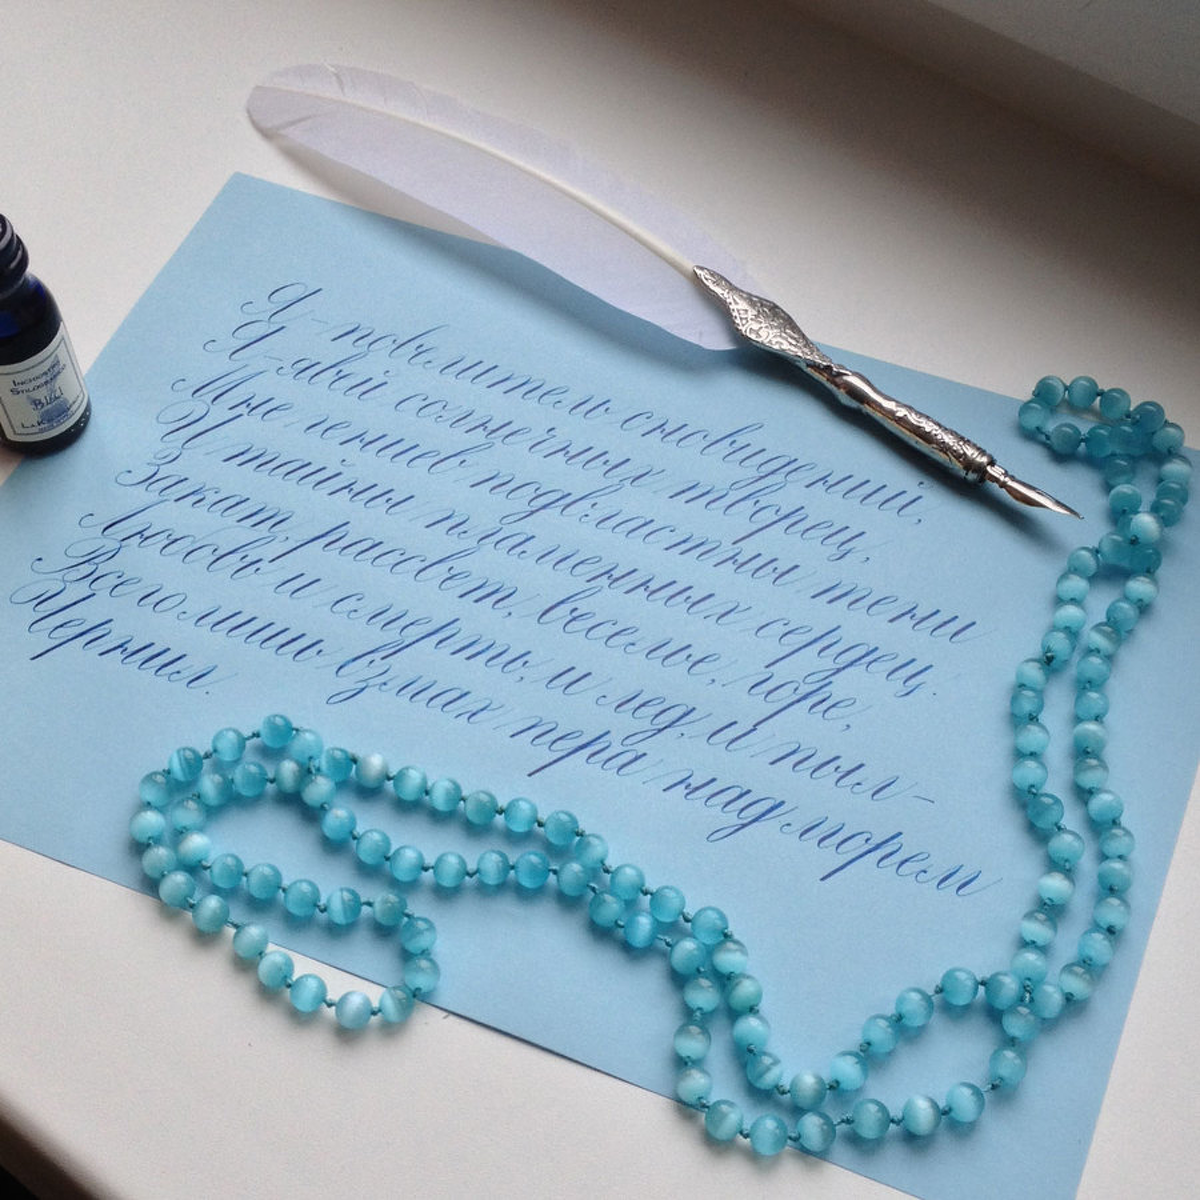 Я - повелитель сновидений,
Я - явий солнечных творец,
Мне гениев подвластны тени
И тайны пламенных сердец.
Закат, рассвет, веселье, горе,
Любовь и смерть, и лед, и пыл -
Всего лишь взмах пера над морем
Чернил.
INCHIOSTRO
STILOGRAFICO
BLU